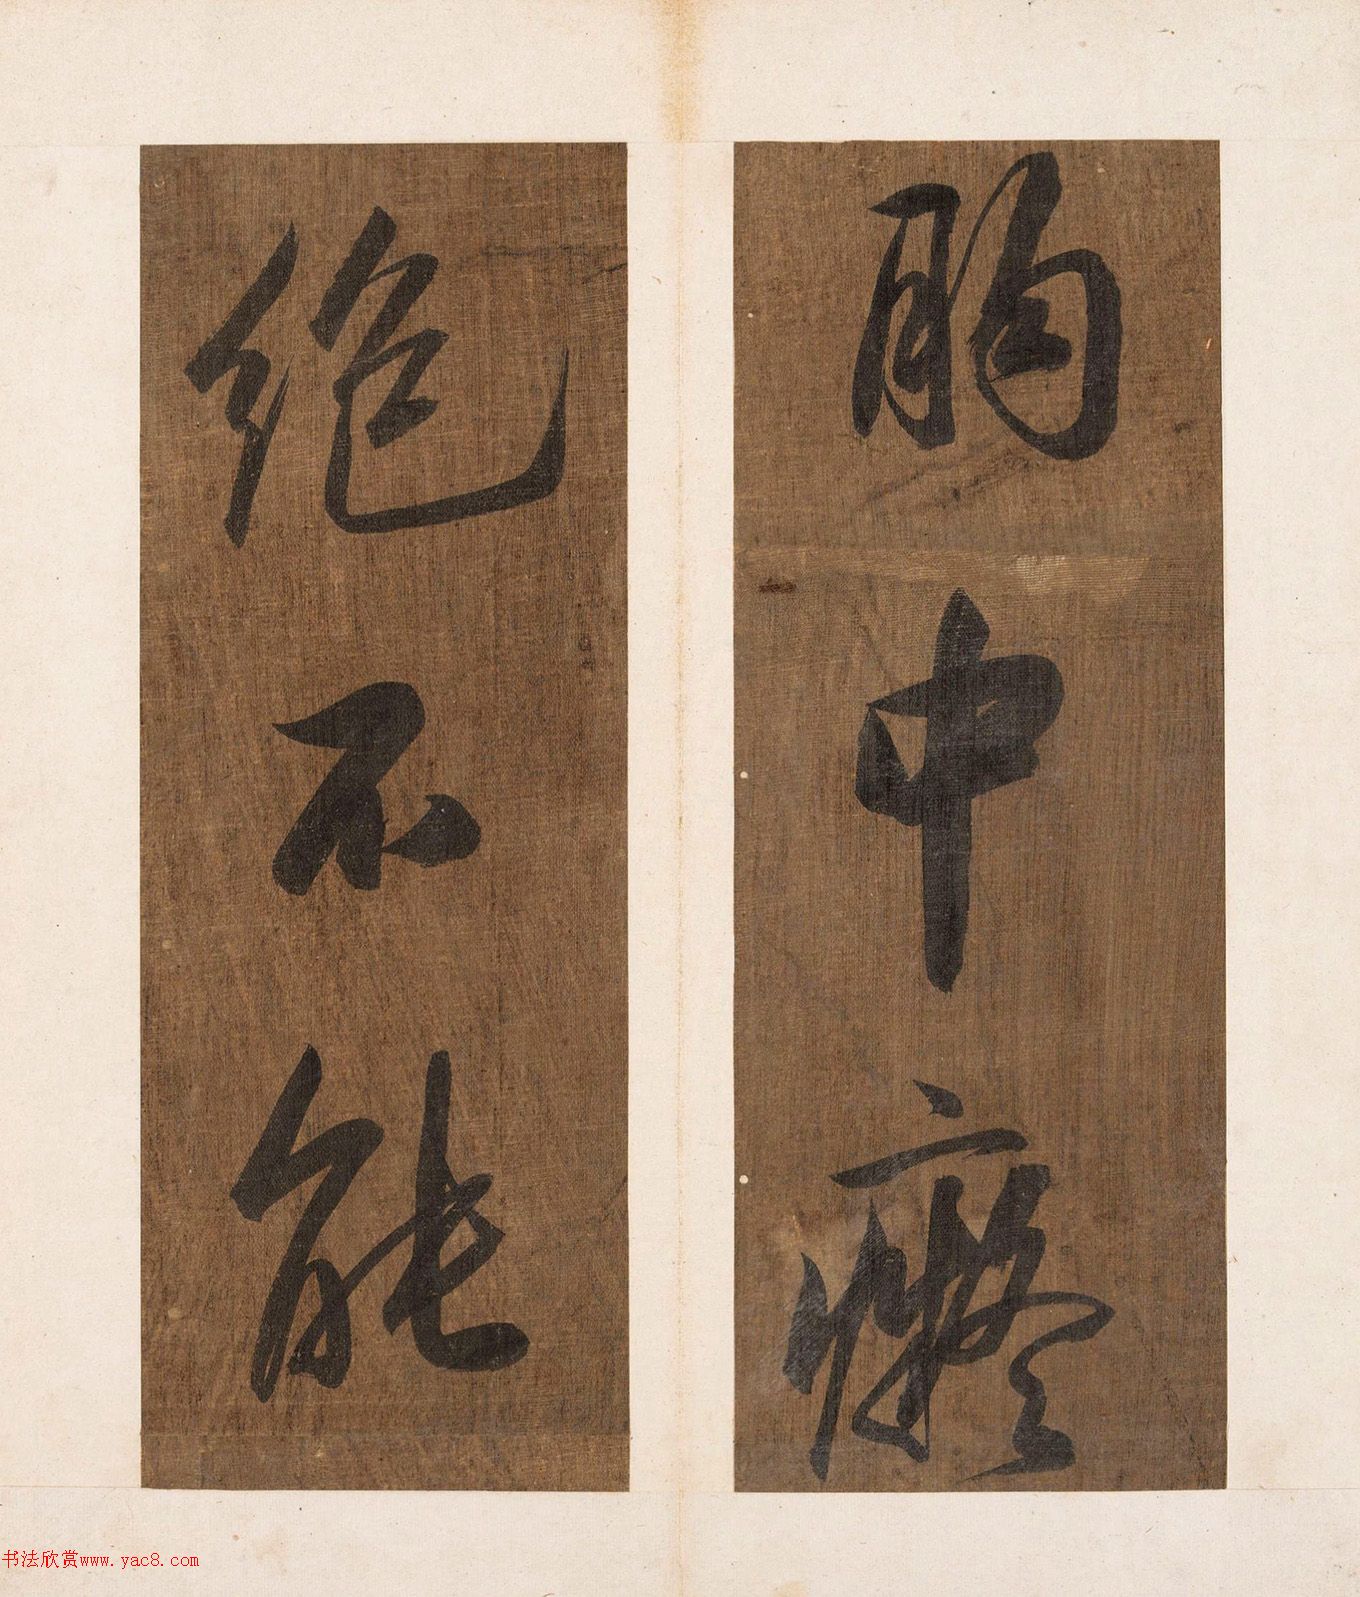 胸中癡
絶不能
书法欣赏www.yac8.com